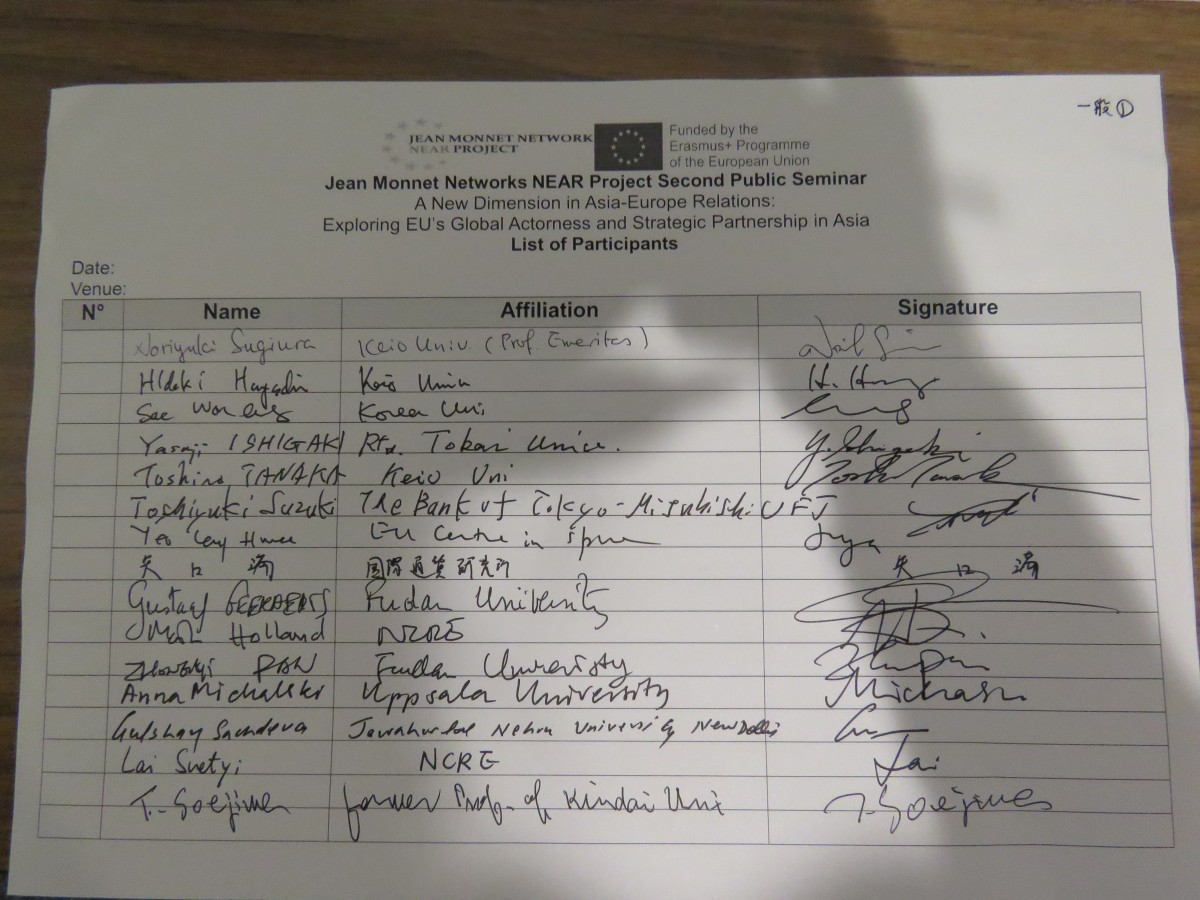 一般①
JEAN MONNET NETWORK
NEAR PROJECT
Funded by the
Erasmus+ Programme
of the European Union
Jean Monnet Networks NEAR Project Second Public Seminar
A New Dimension in Asia-Europe Relations:
Exploring EU's Global Actorness and Strategic Partnership in Asia
List of Participants
Date:
Venue:
N° Name Affiliation Signature
Noriyuki Sugiura Keio Univ. (Prof. Emeritus)
Hideki Keio Univ H.
Sae Won Korea Uni.
Yasuji ISHIGAKI Tokai Univ. Y. Ishigaki
Toshiro TANAKA Keio Uni Toshiro Tanaka
Toshiyuki Suzuki The Bank of Tokyo-Mitsubishi UFJ
Yeo Lay Hwee EU Centre in S'pore
矢口 満 国際通貨研究所 矢口 満
Gustaaf GEERAERTS Fudan University
Holland NCRE
Zhongqi PAN Fudan University
Anna Michalski Uppsala University Michalski
Gulshan Sachdeva Jawaharlal Nehru University New Delhi
Lai Suetyi NCRE Lai
T. Soejima former Prof. of Kindai Uni T. Soejima